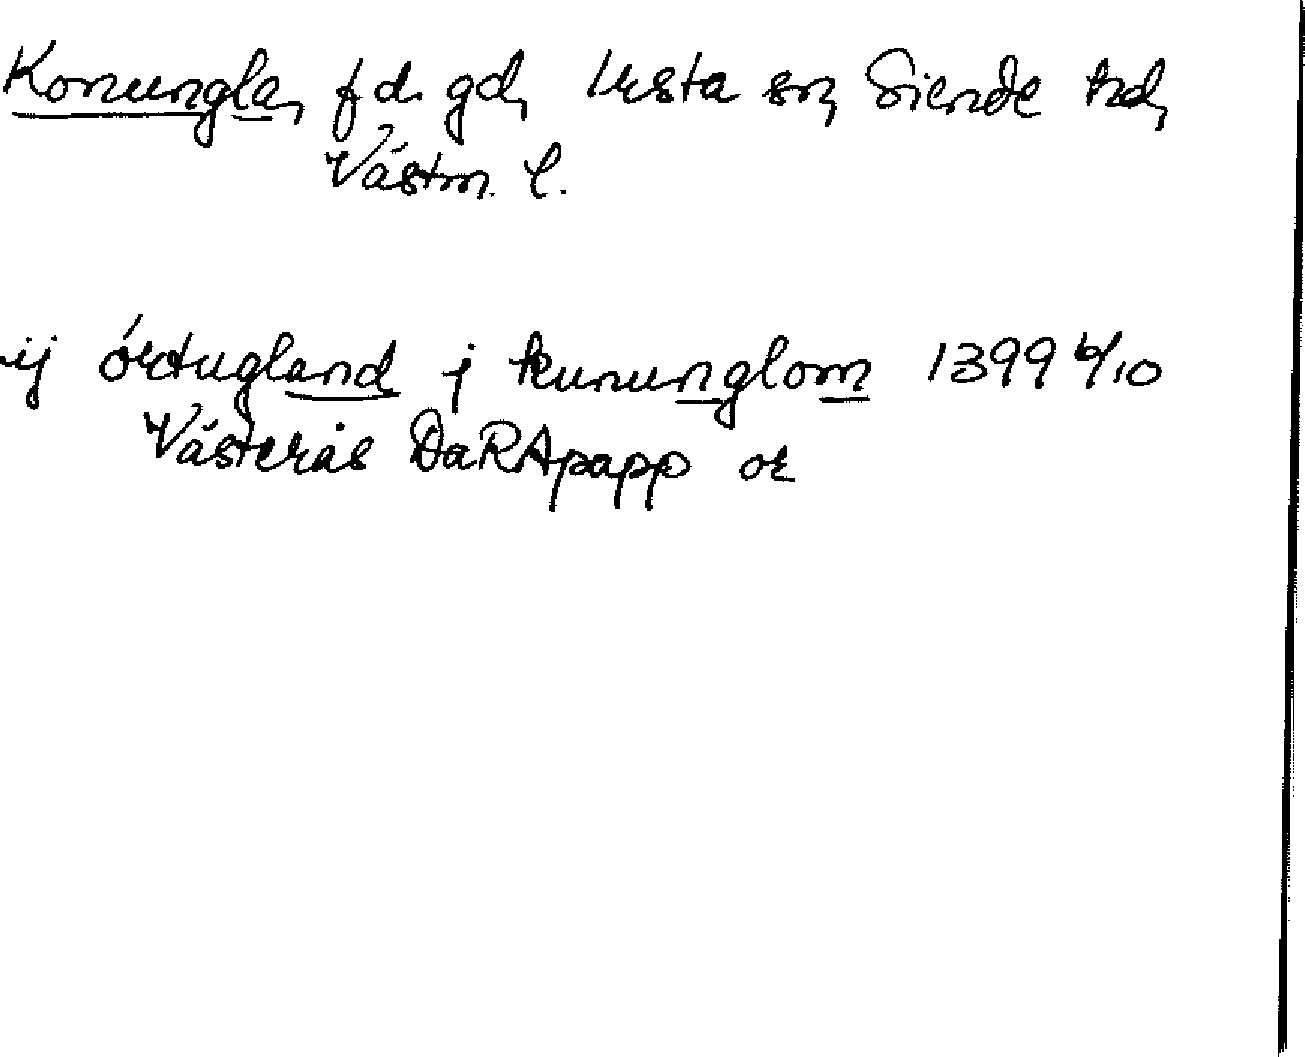 Konungla, f d. gd, Irsta sn, Siende hd,
Västm. l.
ij örtugland j kununglom 1399 6/10
Västerås DaRApapp or